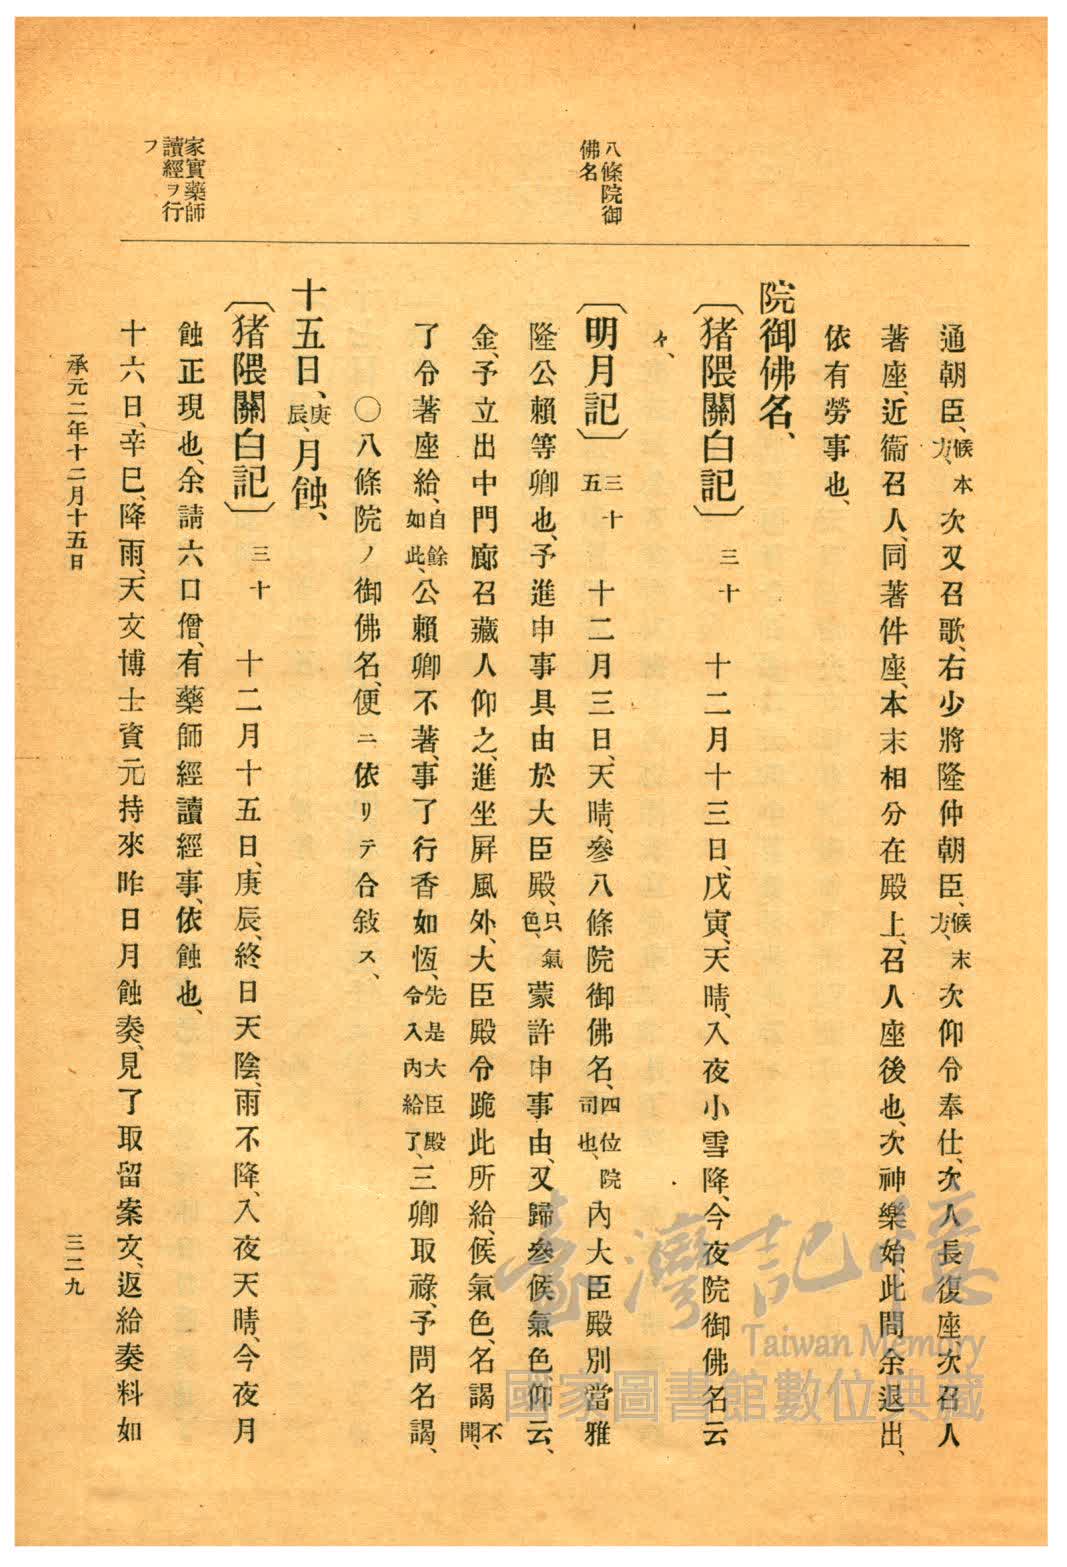 八條院御
佛名
家實藥師
讀經ヲ行
フ
通朝臣、候本方、次又召歌、右少將隆仲朝臣、候末方、次仰令奉仕、次人長復座、次召人
著座、近衞召人、同著件座、本末相分在殿上、召人座後也、次神樂始、此間余退出、
依有勞事也、
院御佛名、
〔猪隈關白記〕 三十 十二月十三日、戊寅、天晴、入夜小雪降、今夜院御佛名云
々、
〔明月記〕 三十五 十二月三日、天晴、參八條院御佛名、四位院司也、內大臣殿別當雅
隆公賴等卿也、予進申事具由於大臣殿、只氣色、蒙許申事由、又歸參候氣色仰云、
金、予立出中門廊召藏人仰之、進坐屛風外、大臣殿令跪此所給、候氣色、名謁不聞、
了令著座給、自餘如此、公賴卿不著、事了行香如恆、先是大臣殿令入內給了、三卿取祿、予問名謁、
〇八條院ノ御佛名、便ニ依リテ合敍ス、
十五日、庚辰、月蝕、
〔猪隈關白記〕 三十 十二月十五日、庚辰、終日天陰、雨不降、入夜天晴、今夜月
蝕正現也、余請六口僧、有藥師經讀經事、依蝕也、
十六日、辛巳、降雨、天文博士資元持來昨日月蝕奏、見了取留案文、返給奏料如
承元二年十二月十五日
三二九
臺灣記憶
Taiwan Memory
國家圖書館數位典藏